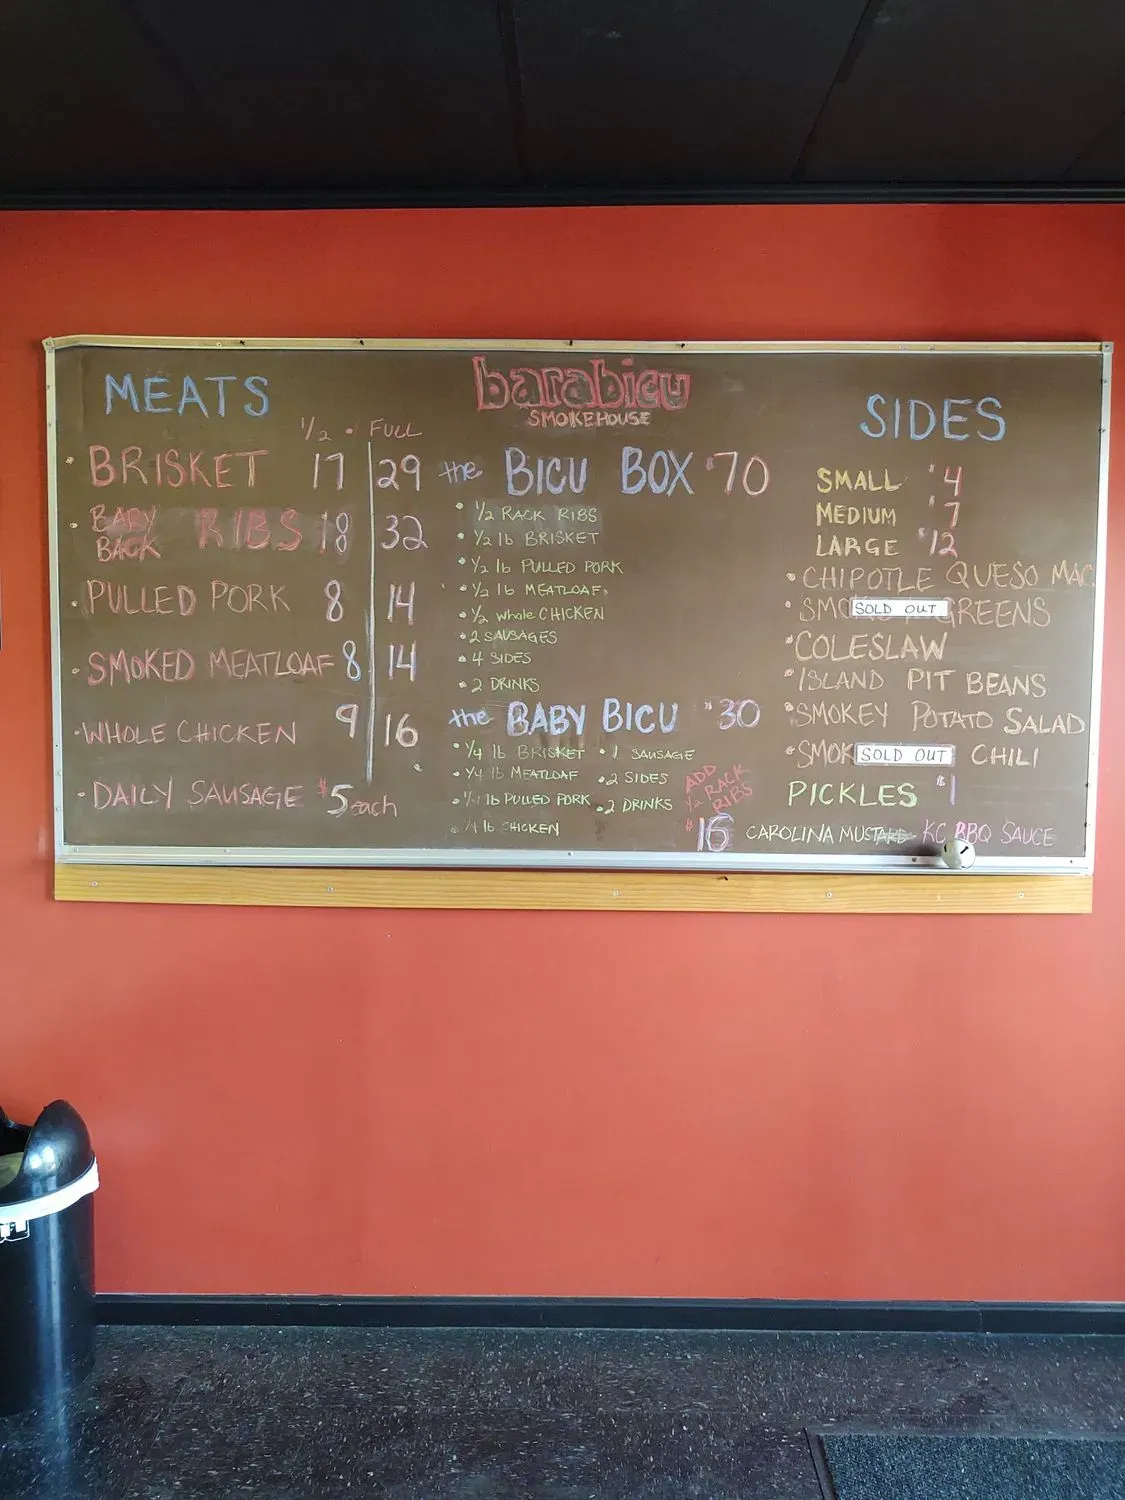 MEATS
1/2 • FULL
• BRISKET 17 29
• BABY BACK RIBS 18 32
• PULLED PORK 8 14
• SMOKED MEATLOAF 8 14
• WHOLE CHICKEN 9 16
• DAILY SAUSAGE $5 each
barabicu
SMOKEHOUSE
the BICU BOX $70
• 1/2 RACK RIBS
• 1/2 lb BRISKET
• 1/2 lb PULLED PORK
• 1/2 lb MEATLOAF
• 1/2 whole CHICKEN
• 2 SAUSAGES
• 4 SIDES
• 2 DRINKS
the BABY BICU $30
• 1/4 lb BRISKET • 1 SAUSAGE
• 1/4 lb MEATLOAF • 2 SIDES
• 1/4 lb PULLED PORK • 2 DRINKS
• 1/4 lb CHICKEN
ADD
1/2 RACK
RIBS
$16
SIDES
SMALL $4
MEDIUM $7
LARGE $12
• CHIPOTLE QUESO MAC
• SOLD OUT GREENS
• COLESLAW
• ISLAND PIT BEANS
• SMOKEY POTATO SALAD
• SOLD OUT CHILI
PICKLES $1
CAROLINA MUSTARD KC BBQ SAUCE